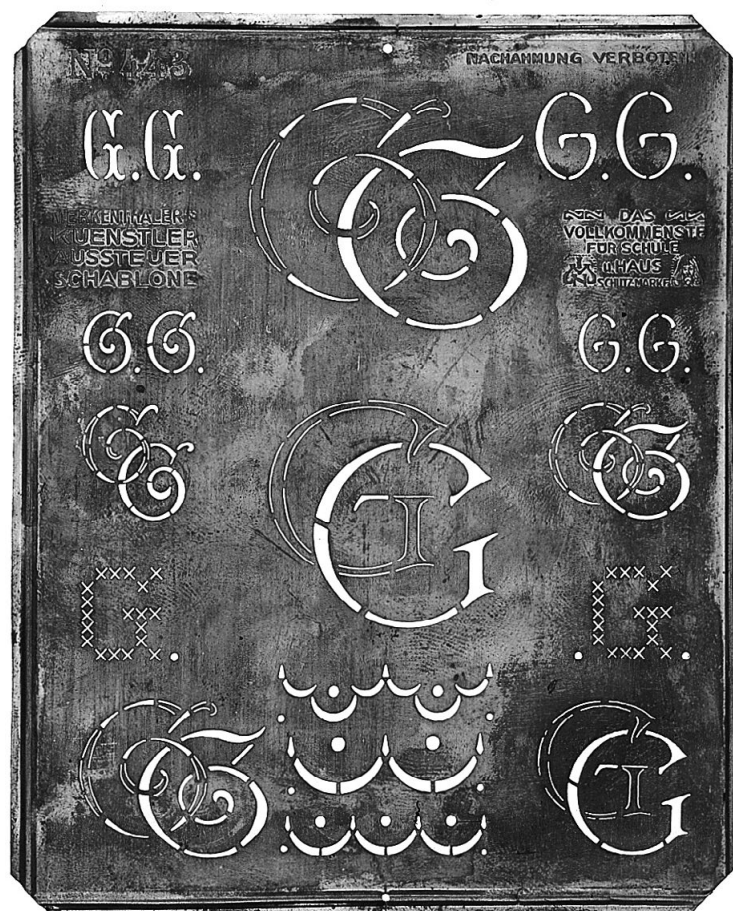 NACHAHMUNG VERBOTEN
G.G.
GG
G.G.
MERKENTHALER'S
KUENSTLER
AUSSTEUER
SCHABLONE
DAS
VOLLKOMMENSTE
FÜR SCHULE
U. HAUS
SCHUTZ-MARKE
G.G.
G.G.
GG
GG
GG
G.
.G.
GG
GG